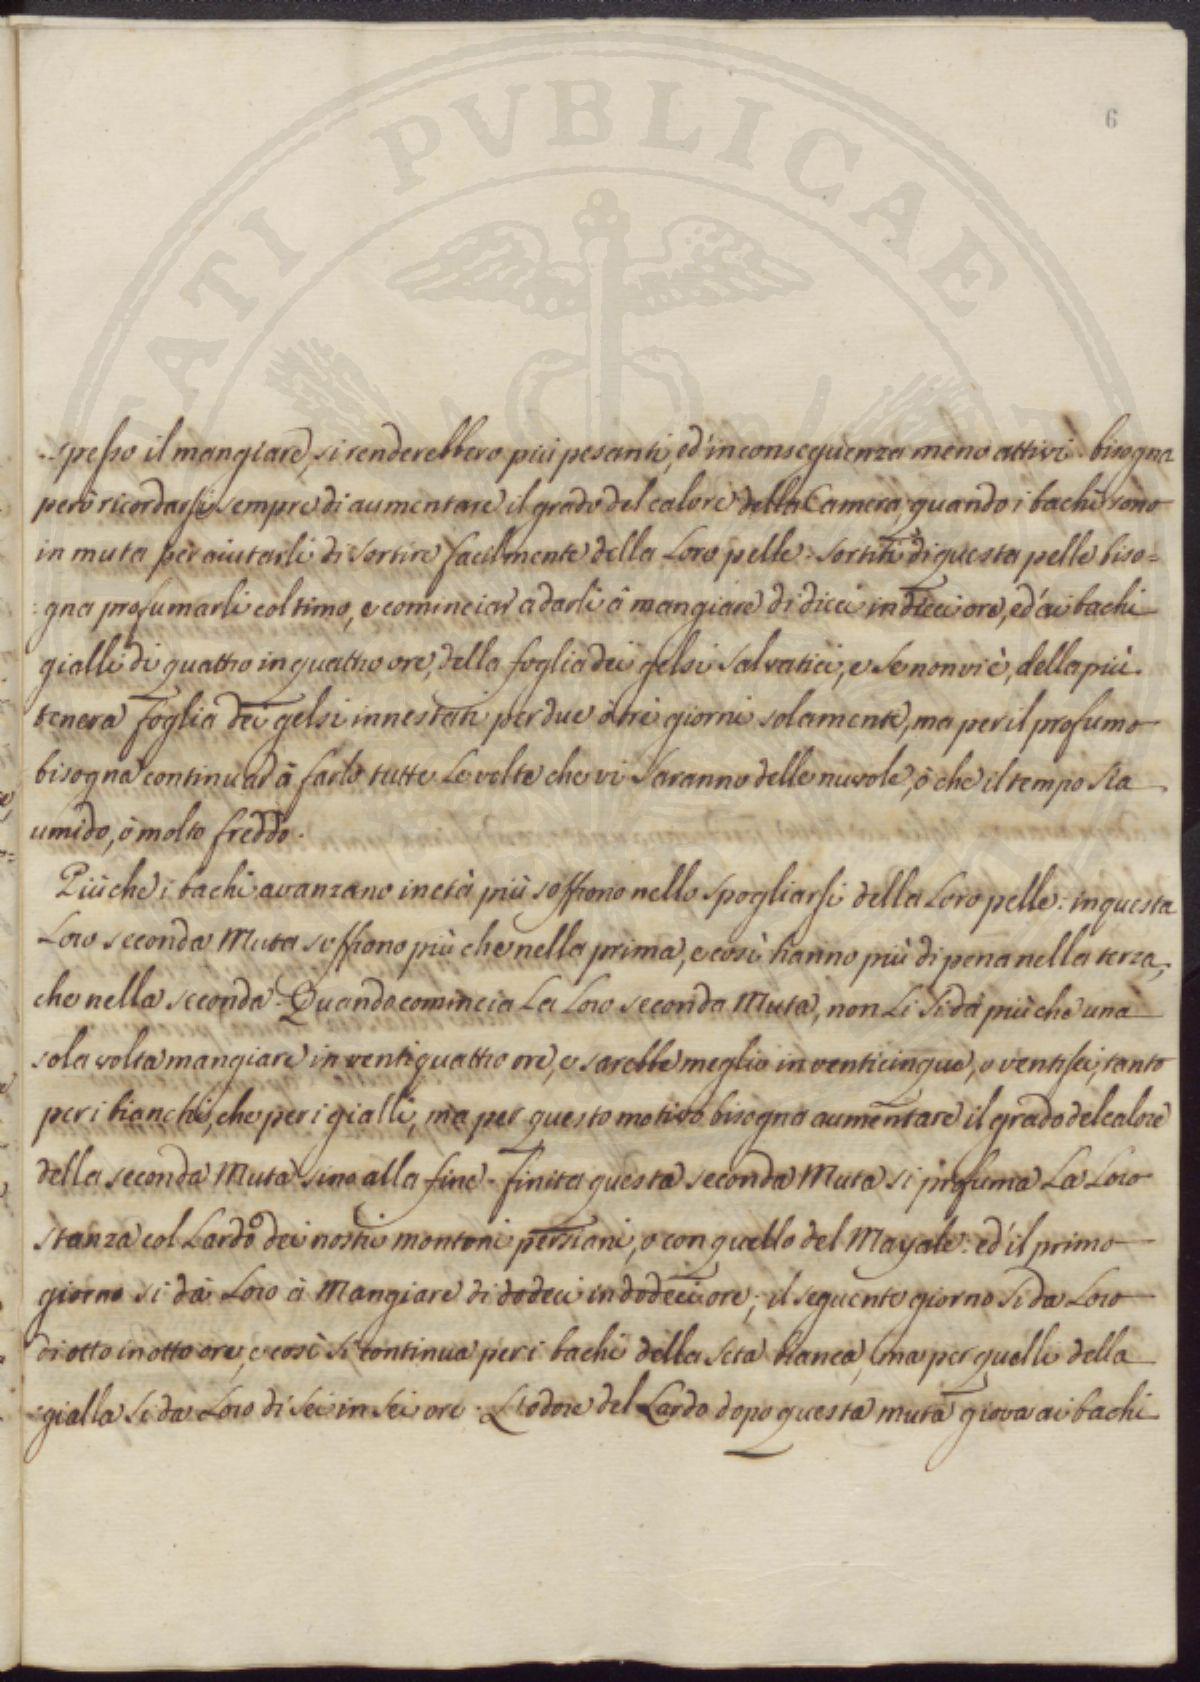 6
spesso il mangiare, si renderebbero più pesanti, ed' in conseguenza meno attivi. bisogna
però ricordarsi sempre di aumentare il grado del calore della Camera, quando i bachi sono
in muta per aiutarli di sortire facilmente della Loro pelle: sortiti di questa pelle biso=
:gna profumarli col timo, e cominciar a darli à mangiare di dieci in dieci ore, ed' ai bachi
gialli di quattro in quattro ore, della foglia dei gelsi salvatici, e se non vi è, della più
tenera foglia dei gelsi innestati per due ò tre giorni solamente, ma per il profumo
bisogna continuar à farlo tutte le volte che vi saranno delle nuvole, ò che il tempo sia
umido, ò molto freddo.
Più che i bachi avanzano in età più soffrono nello spogliarsi della Loro pelle: in questa
Loro seconda Muta soffrono più che nella prima, e così hanno più di pena nella terza,
che nella seconda. Quando comincia La Loro seconda Muta, non Li si dà più che una
sola volta mangiare in ventiquattro ore, e sarebbe meglio in venticinque, o ventisei, tanto
per i bianchi, che per i gialli, ma per questo motivo bisogna aumentare il grado del calore
della seconda Muta sino alla fine. finita questa seconda Muta si profuma La Loro
stanza col Lardo dei nostri montoni persiani, o con quello del Mayale: ed' il primo
giorno si dà Loro à Mangiare di dodeci in dodeci ore; il seguente giorno si da Loro
di otto in otto ore, e così si continua per i bachi della seta bianca, ma per quelli della
gialla si da Loro di sei in sei ore. L'odore del Lardo dopo questa muta giova ai bachi
PUBLICAE